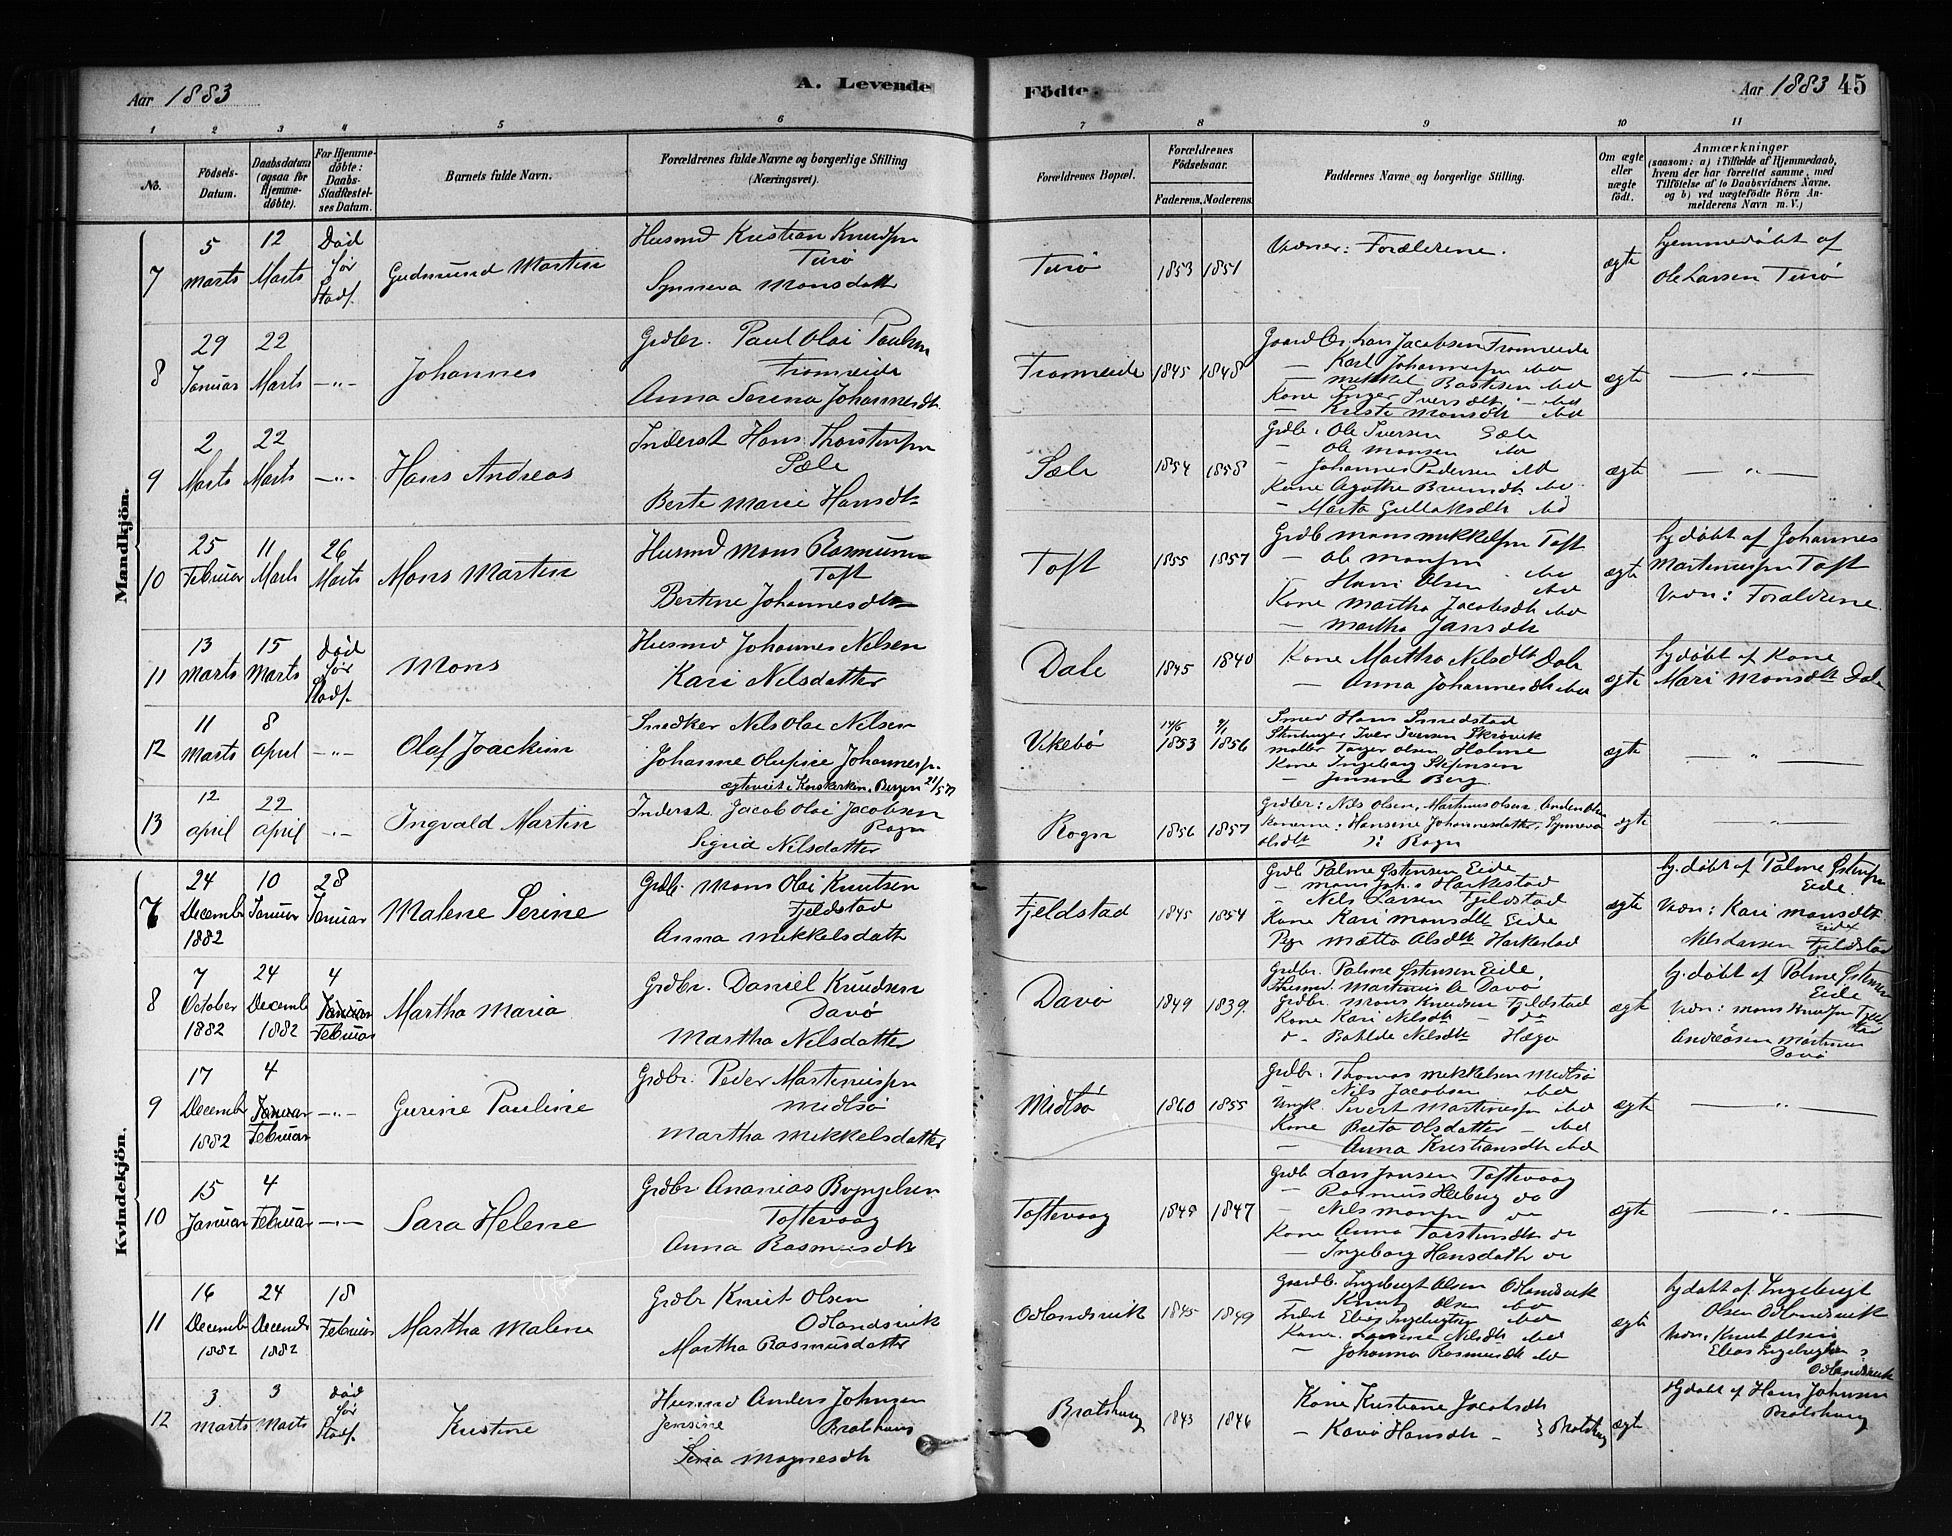 Aar 1883
A. Levende
Födte.
Aar 1883 45
1 2 3 4 5 6 7 8 9 10 11
No.
Födsels-
Datum.
Daabsdatum
(ogsaa för
Hjemme-
döbte).
For Hjemme-
döbte:
Daabs-
Stadfæstel-
ses Datum.
Barnets fulde Navn.
Forældrenes fulde Navne og borgerlige Stilling
(Næringsvei).
Forældrenes Bopæl.
Forældrenes
Födselsaar.
Faderens. Moderens.
Faddernes Navne og borgerlige Stilling.
Om ægte
eller
uægte
födt.
Anmærkninger
(saasom: a) i Tilfælde af Hjemmedaab,
hvem der har forrettet samme, med
Tilföielse af to Daabsvidners Navne,
og b) ved uægtefödte Börn An-
melderens Navn m. V.)
Mandkjön.
7
5
Marts
12
Marts
Död
før
Stadf.
Gudmund Martin
Husmd Kristian Knudsen
Turö
Synneva Monsdatt
Turö
1853 1851
Vidner: Forældrene.
ægte
hjemmedöbt af
Ole Larsen Turö
8
29
Januar
22
Marts
—„—
Johannes
Grdbr. Paul Olai Paulsen
Tromreide
Anna Serena Johannesdtr
Tromreide
1845 1848
Gaardbr Lars Jacobsen Tromreide
— Karl Johannesen ibd
— Mikkel Bastesen ibd
Kone Inger Iversdtr — ibd
— Kirste Monsdtr ibd
ægte
— „ —
9
2
Marts
22
Marts
—„—
Hans Andreas
Inderst Hans Thorstensen
Sæle
Berte Marie Hansdtr
Sæle
1854 1858
Grdbr. Ole Iversen Sæle
— Ole Monsen ibd
— Johannes Pedersen ibd
Kone Agathe Brundtr ibd
— Marta Gullaksdtr ibd
ægte
— „ —
10
25
Februar
11
Marts
26
Marts
Mons Martin
Husmd Mons Rasmussen
Toft
Bertine Johannesdtr
Toft
1855 1857
Grdb Mons Mikkelsen Toft
— Ole Monsen
— Hans Olsen ibd
Kone Martha Jacobsdtr ibd
— Martha Jansdtr
ægte
hjdöbt af Johannes
Martinusen Toft
Vidn: Forældrene
11
13
Marts
15
Marts
död
før
Stadf.
Mons
Husmd Johannes Nilsen
Kari Nilsdatter
Dale
1845 1840
Kone Martha Nilsdtr Dale
— Anna Johannesdtr ibd
ægte
hjdöbt af Kone
Mari Monsdtr Dale
12
11
Marts
8
April
—„—
Olaf Joackim
Snedker Nils Olai Nilsen
Johanne Olufine Johannesen
ægteviet i Korskirken, Bergen 21/5 77
Vikebö
14/5 1853 9/1 1856
Smed Hans Smedstad
Stenhugger Iver Iversen Skrövik
Möller Torger Olsen Holme
Kone Ingeborg Steffensen
— Jensine Berg
ægte
— „ —
13
12
April
22
April
—„—
Ingvald Martin
Inderst Jacob Olai Jacobsen
Rogn
Sigrid Nilsdatter
Rogn
1856 1857
Grdbr: Nils Olsen, Martinus Olsen,
Konerne: Hansine Johannesdatter, Synneva
Olsdtr Rogn
ægte
— „ —
Kvindekjön.
7
24
December
1882
10
Januar
28
Januar
Malene Serine
Grdbr. Mons Olai Knutsen
Fjeldstad
Anna Mikkelsdattr
Fjeldstad
1845 1854
Grdb Palme Østensen Eide
— Mons Joh. Harkestad
— Nils Larsen Fjeldstad
Kone Kari Monsdtr Eide
Pige Mætta Alsdtr Harkestad
ægte
hj.döbt af Palme Østensen
Eide
Vidn: Kari Monsdtr
Eide
Nils Larsen Fjeldstad
8
7
October
1882
24
Decemb
1882
4
Januar
Februar
Martha Maria
Grdbr. Daniel Knudsen
Davö
Martha Nilsdatter
Davö
1849 1839.
Grdbr. Palme Østensen Eide,
Husmd. Martinus Davö
Grdbr. Mons Knudsen Fjeldstad
Kone Kari Nilsdtr — do
d— Batilde Nilsdtr Hægo
ægte
hj.döbt af Palme Østensen
Eide
Vidn: Mons Knudsen Fjeld
stad
Martinus
Davö
9
17
Decemb
1882
4
Januar
Februar
—„—
Gurine Pauline
Grdbr. Peder Martinusen
Midtsö
Martha Mikkelsdatter
Midtsö
1860 1855
Grdbr. Thomas Mikkelsen Midtsö
— Nils Jacobsen ibd
Ungk. Sivert Martinusen ibd
Kone Brita Olsdatter — ibd
— Anna Kristiansdtr ibd
ægte
— „ —
10
15
Januar
4
Februar
—„—
Sara Helene
Grdbr Ananias Brynjelsen
Toftevaag
Anna Rasmusdtr
Toftevaag
1849 1847
Grdb Lars Jensen Toftevaag
— Rasmus Heiberg do
— Nils Monsen do
Kone Anna Torstensdtr do
— Ingeborg Hansdattr do
ægte
— „ —
11
16
Decemb
1882
24
December
1882
18
Februar
Martha Malene
Grdbr Knut Olsen
Odlandsvik
Martha Rasmusdatter
Odlandsvik
1845 1849
Gaardb. Ingebrigt Olsen Odlandsvik
— Knut Olsen ibd
Inderst Elias Ingebrigtsen ibd
Kone. Nilsdtr ibd
— Johanna Rasmusdtr ibd
ægte
hjdöbt af Ingebrigt
Olsen Odlandsvik
Vidn: Knut Olsen
Elias Ingebrigtsen
Odlandsvik
12
3
Marts
3
Marts
död
før
Stadf.
Kristine
Husmd Anders Johnsen
Jensine Bratshaug
Sina Magnesdtr
Bratshaug
1843 1846
Kone Kristiane Jacobsdtr
— Hansdtr — } Bratshaug
ægte
Hjdöbt af Hans Johnsen
Bratshaug